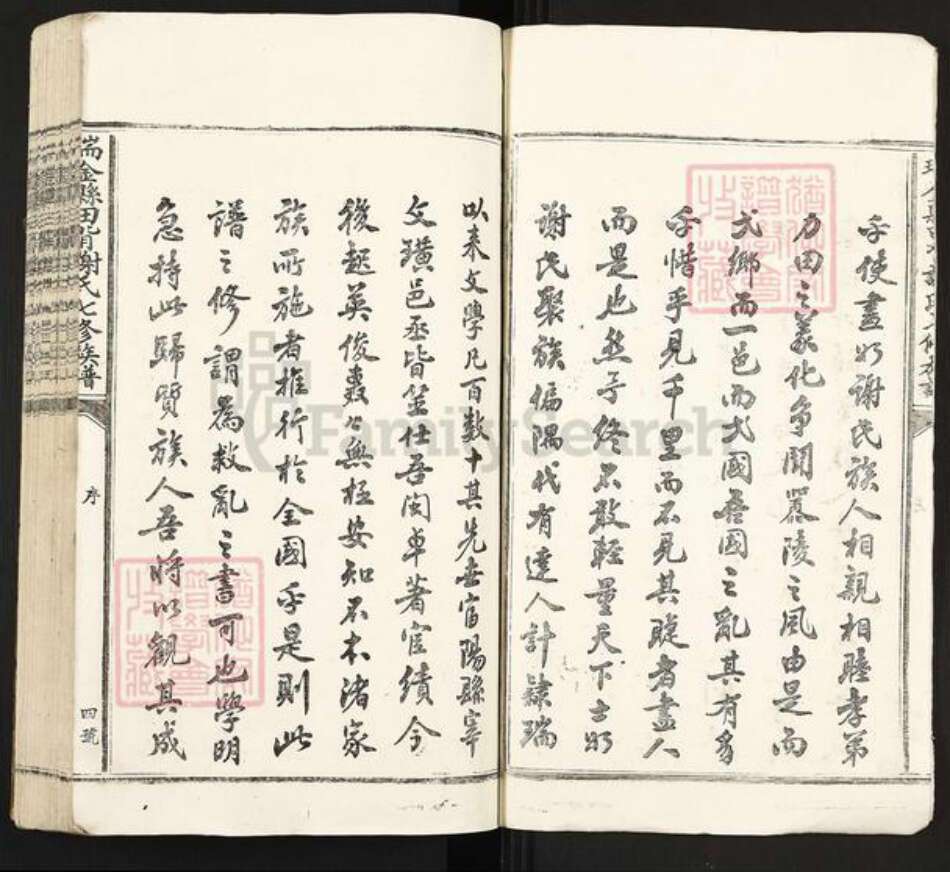 乎使盡如謝氏族人相親相睦孝弟
力田之義化爭鬭囂陵之風由是而
式鄉而一邑而式國吾國之亂其有豸
乎惜乎見千里而不見其睫者盡人
而是也然予終不敢輕量天下士如
謝氏聚族偏隅代有達人計隸瑞
以來文學凡百數十其先世富陽縣宰
文璜邑丞皆筮仕吾閩卓著宦績今
後起英俊裊裊無極安知不本諸家
族所施者推行於全國乎是則此
譜之修謂為救亂之書可也學明
急持此歸質族人吾將以觀其成
瑞金縣田背謝氏七修族譜
序
四號
FamilySearch